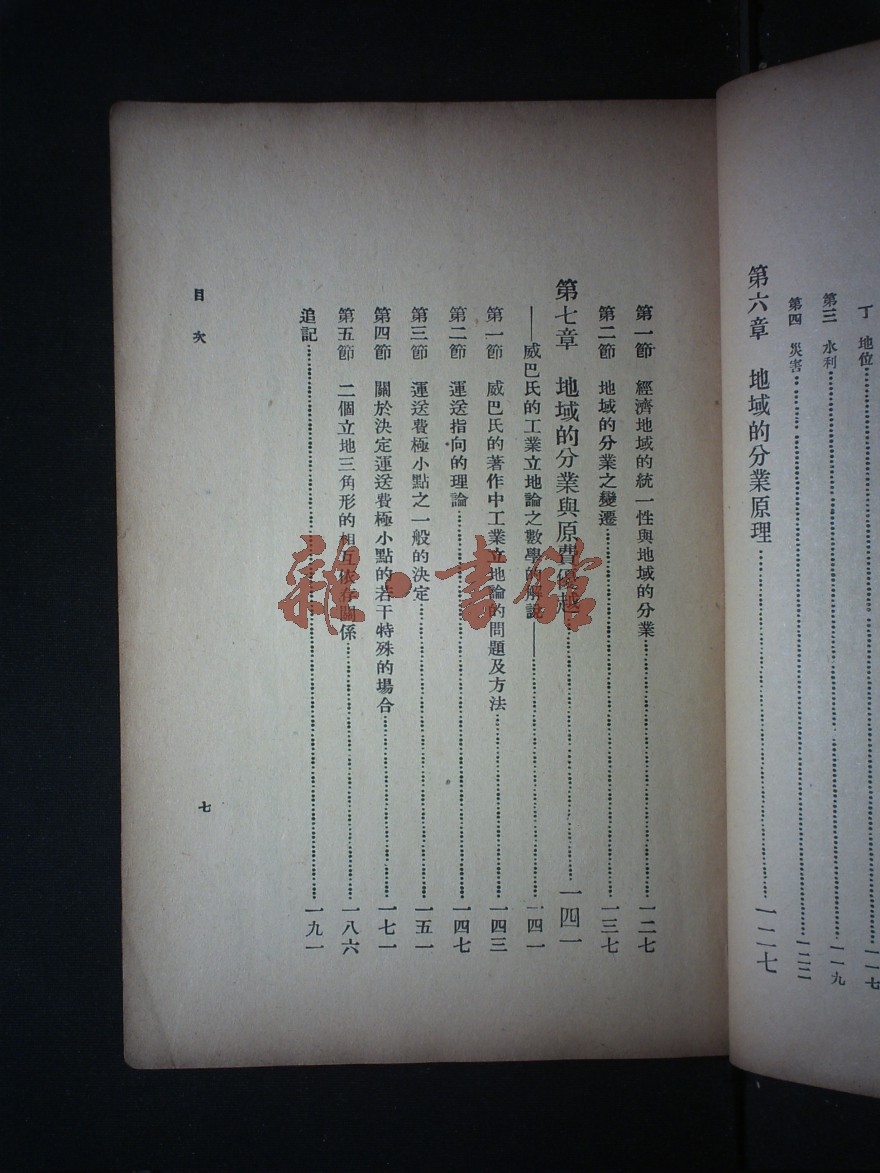 丁 地位……一一七
第三 水利……一一九
第四 災害……一二二
第六章 地域的分業原理……一二七
第一節 經濟地域的統一性與地域的分業……一二七
第二節 地域的分業之變遷……一三七
第七章 地域的分業與原費優越……一四一
——威巴氏的工業立地論之數學的解說——……一四一
第一節 威巴氏的著作中工業立地論的問題及方法……一四三
第二節 運送指向的理論……一四七
第三節 運送費極小點之一般的決定……一五一
第四節 關於決定運送費極小點的若干特殊的場合……一七一
第五節 二個立地三角形的相互依存關係……一八六
追記……一九一
目次
七
雜·書館